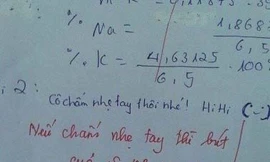 % Na = 1,868 / 6,5
% K = 4,63125 / 6,5 . 100
2:
Cô chấm nhẹ tay thôi nhé! HiHi (--)
Nếu chấm nhẹ tay thì bút